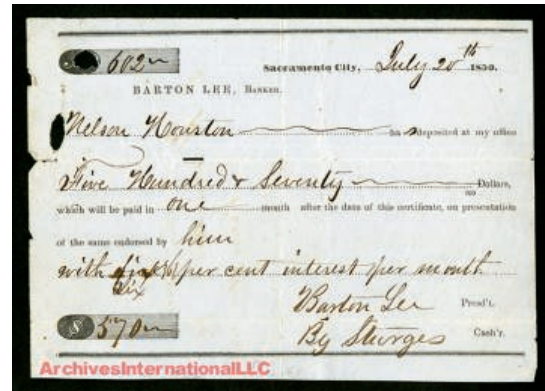 602
Sacramento City, July 20th 1850.
BARTON LEE, BANKER.
Nelson Houston has deposited at my office
Five Hundred & Seventy no Dollars,
which will be paid in one month after the date of this certificate, on presentation
of the same endorsed by him
with six 6 per cent interest per month
Six
Barton Lee Presd't.
$ 570 By Sturges Cash'r.
ArchivesInternationalLLC